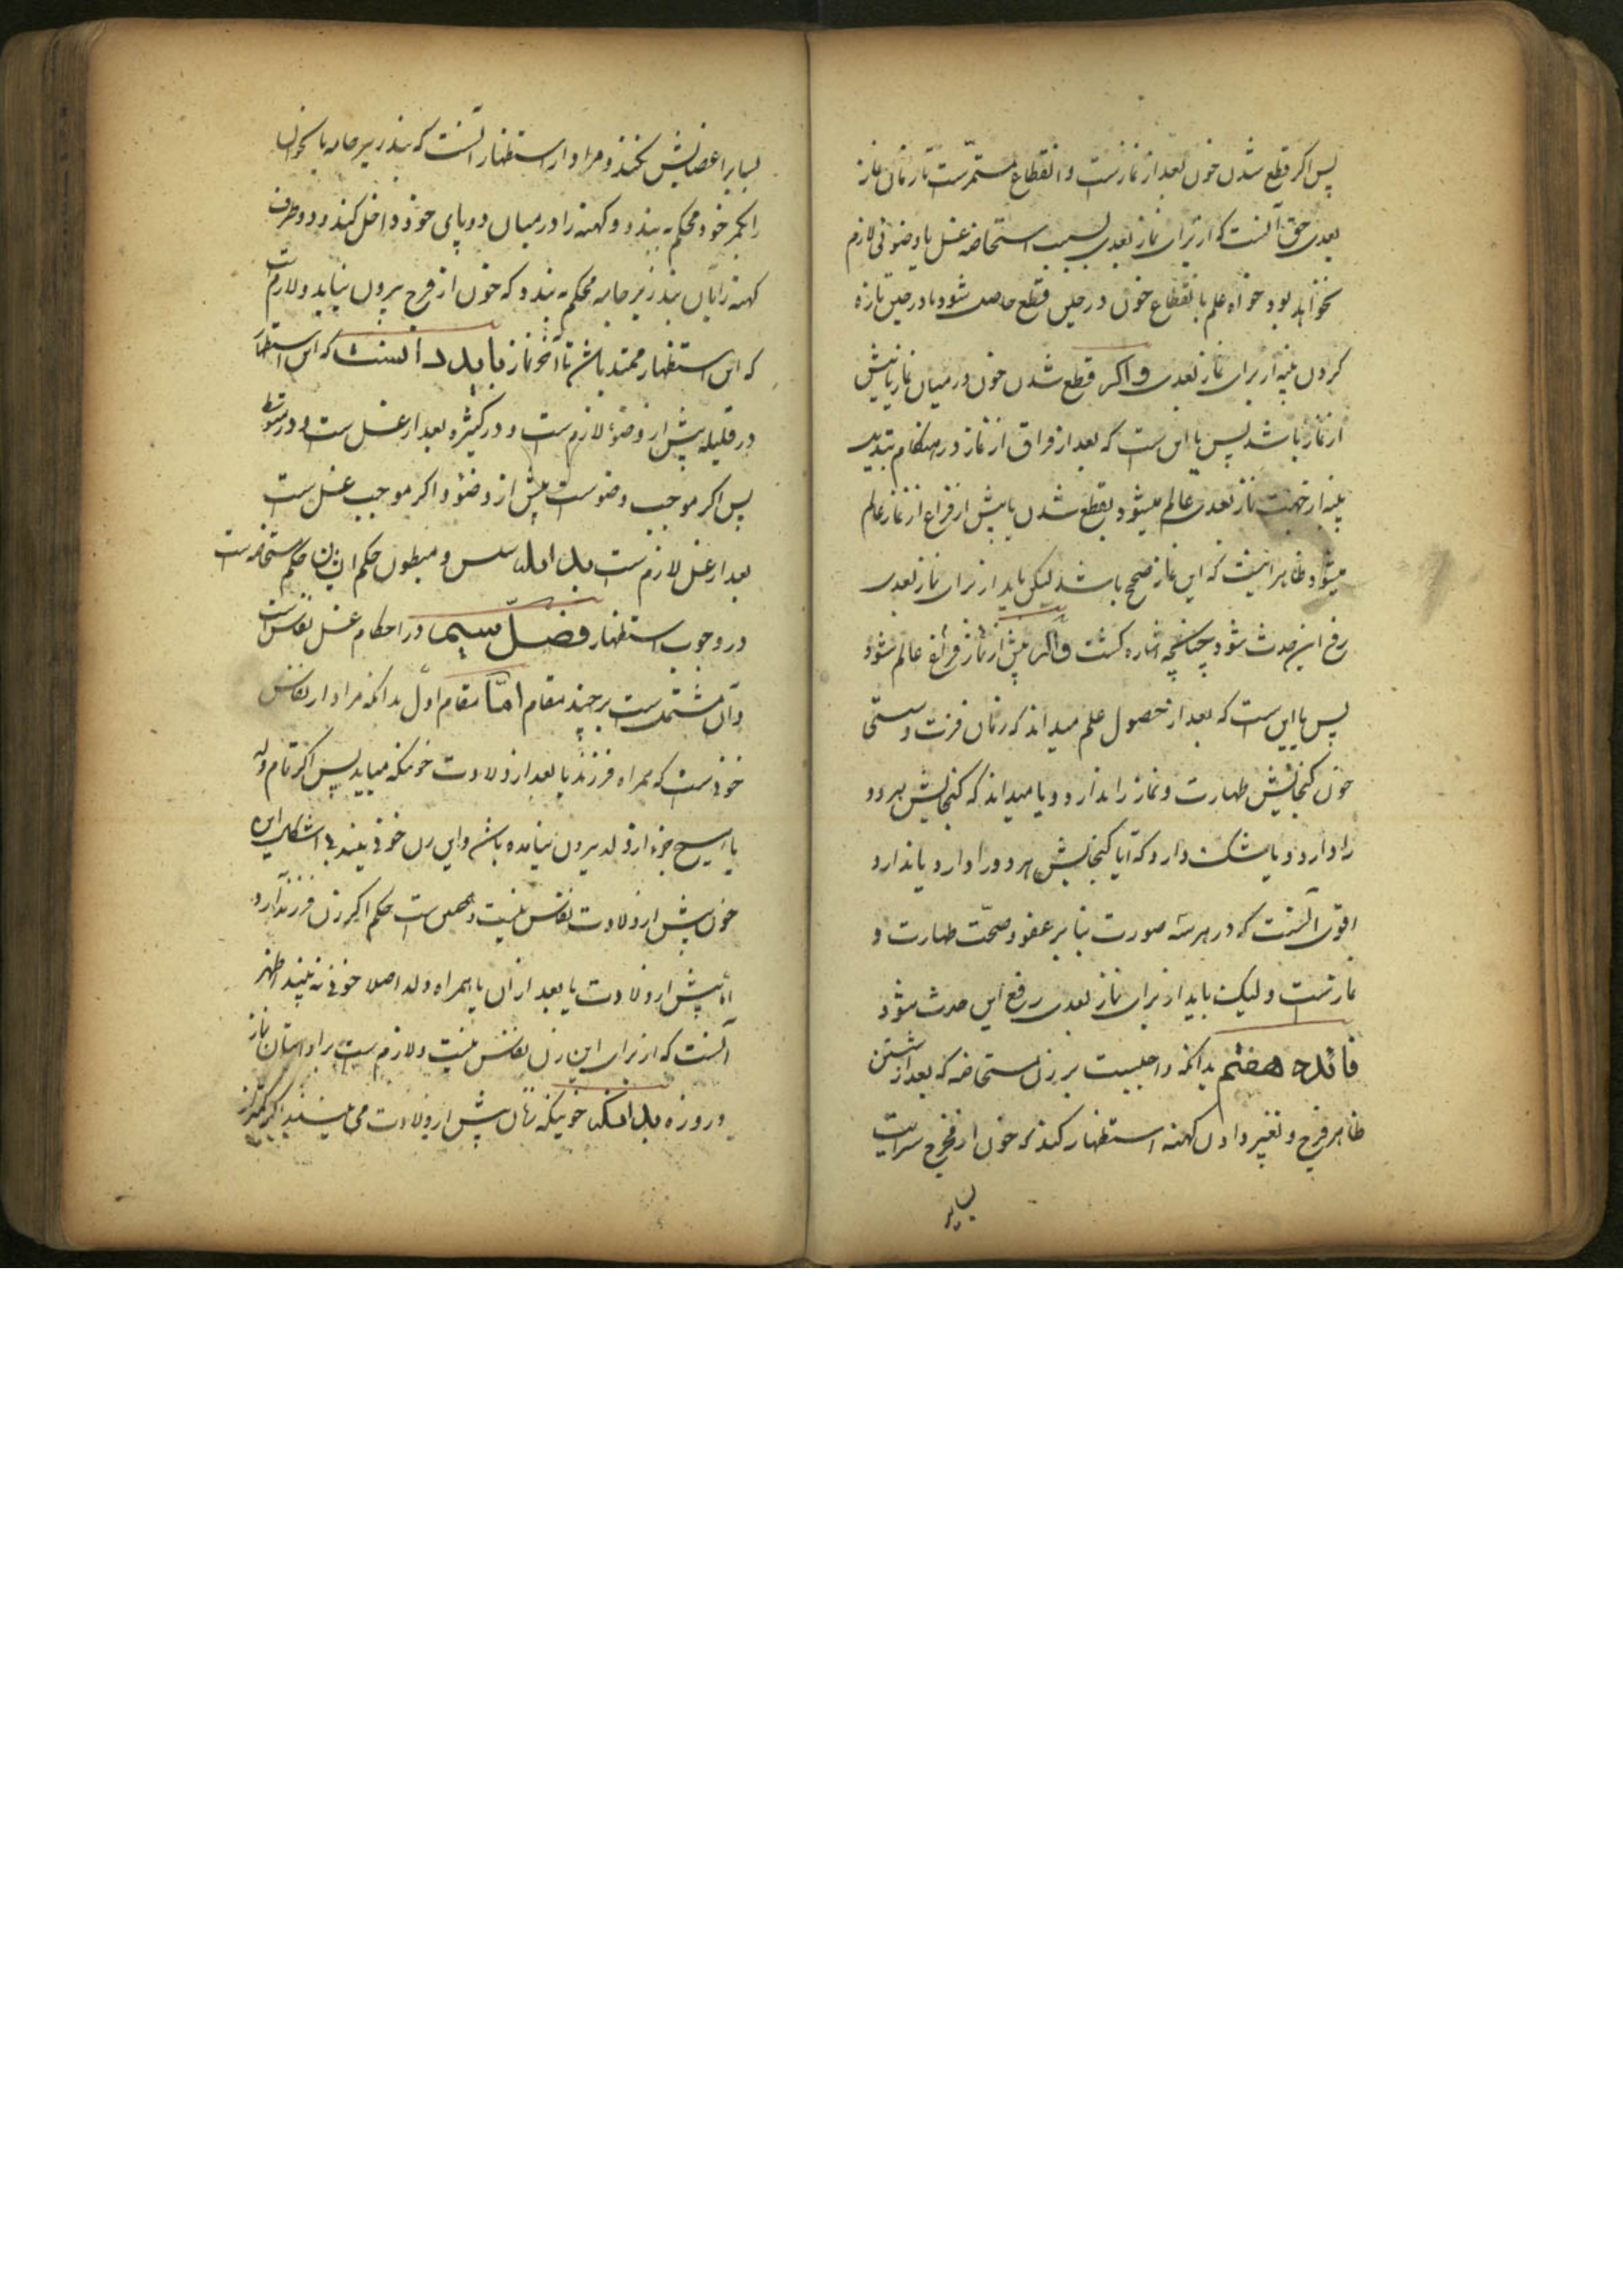 پس اگر قطع شدن خون بعد از نمازست و انقطاع مستمرّست تا زمان نماز
بعدی حق آنست که از برای نماز بعدی بسبب استحاضه غسل یا وضوئی لازم
نخواهد بود خواه علم بانقطاع خون در حین قطع حاصل شود یا در حین تازه
کردن پنبه از برای نماز بعدی و اگر قطع شدن خون در میان نماز یا پیش
از نماز باشد پس یا این ست که بعد از فراق از نماز در هنگام تبدیل
پنبه از جهت نماز بعدی عالم میشود بقطع شدن یا پیش از فراغ از نماز عالم
میشود ظاهر اینست که این نماز صحیح باشد لیکن باید از برای نماز بعدی
رفع این حدث شود چنانچه اشاره گشت و اگر پیش از نماز عالم شود
پس یا این ست که بعد از حصول علم میداند که زمان فترت و سستی
خون گنجایش طهارت و نماز را ندارد و یا میداند که گنجایش هر دو
را دارد و یا شک دارد که آیا گنجایش هر دو را دارد یا ندارد
اقوی آنست که در هر سه صورت بنا بر عفو و صحّت طهارت و
نمازست و لیک باید از برای نماز بعدی رفع این حدث شود
فائده هفتم بدانکه واجبست بر زن مستحاضه که بعد از شستن
ظاهر فرج و تغییر دادن کهنه استظهار کند که خون از فرج سرایت
بسایر
بسایر اعضایش نکند و مراد از استظهار آنست که بند زیر جامه یا
را بکمر خود محکم به بندد و کهنه را در میان دو پای خود داخل کند و دو طرف
کهنه را بآن بند زیر جامه محکم به بندد که خون از فرج بیرون نیاید و لازم ست
که این استظهار ممتد باشد تا آخر نماز باید دانست که این استظهار
در قلیله پیش از وضوء لازم ست و در کثیره بعد از غسل ست و در متوسط
پس اگر موجب وضوست پیش از وضوء و اگر موجب غسل ست
بعد از غسل لازم ست بدانکه سلس و مبطون حکم ایشان حکم مستحاضه ست
در وجوب استظهار فصل سیم در احکام غسل نفاس ست
و آن مشتمل ست بر چند مقام امّا مقام اوّل بدانکه مراد از نفاس
خونیست که همراه فرزند یا بعد از ولادت خونیکه میاید پس اگر تمام ولد
یا هیچ جزء از ولد بیرون نیامده باشد و این زن خونی بیند بی اشکال این
خون پیش از ولادت نفاس نیست و همین ست حکم اگر زن فرزند آرد
امّا پیش از ولادت یا بعد از آن یا همراه ولد اصلا خونی نه بیند اظهر
آنست که از برای این زن نفاس نیست و لازم ست بر او اتیان نماز
و روزه بدانکه خونیکه زنان پیش از ولادت می بینند اگر کمتر از